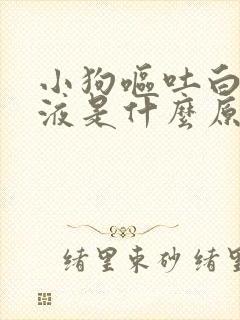 小狗嘔吐白
液是什麼原
绪里束砂绪里